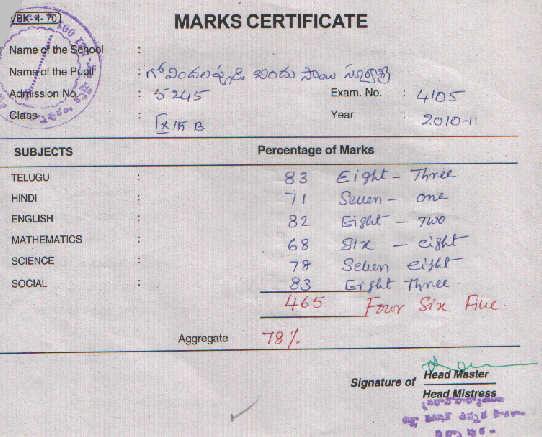 BK-4-70
MARKS CERTIFICATE
Name of the School :
Name of the Pupil : గోవిందగారి బిందు సాయి
Admission No. : 5245 Exam. No. : 4105
Class : IX B Year : 2010-11
SUBJECTS Percentage of Marks
TELUGU : 83 Eight - Three
HINDI : 71 Seven - one
ENGLISH : 82 Eight - Two
MATHEMATICS : 68 Six - eight
SCIENCE : 78 Seven eight
SOCIAL : 83 Eight Three
465 Four Six Five.
Aggregate 78%
Signature of Head Master
Head Mistress